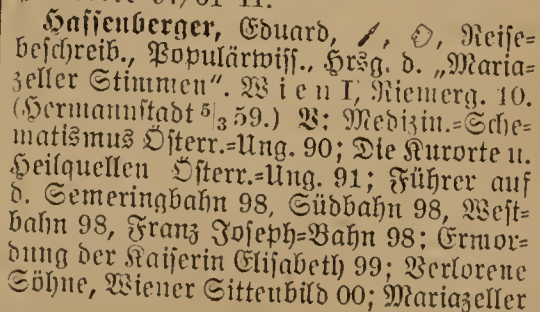 Hassenberger, Eduard, Reise=
beschreib., Populärwiss., Hrsg. d. „Maria=
zeller Stimmen“. Wien I, Riemerg. 10.
(Hermannstadt 5/3 59.) V: Medizin.=Sche=
matismus Österr.=Ung. 90; Die Kurorte u.
Heilquellen Österr.=Ung. 91; Führer auf
d. Semeringbahn 98, Südbahn 98, West=
bahn 98, Franz Joseph=Bahn 98; Ermor=
dung der Kaiserin Elisabeth 99; Verlorene
Söhne, Wiener Sittenbild 00; Mariazeller